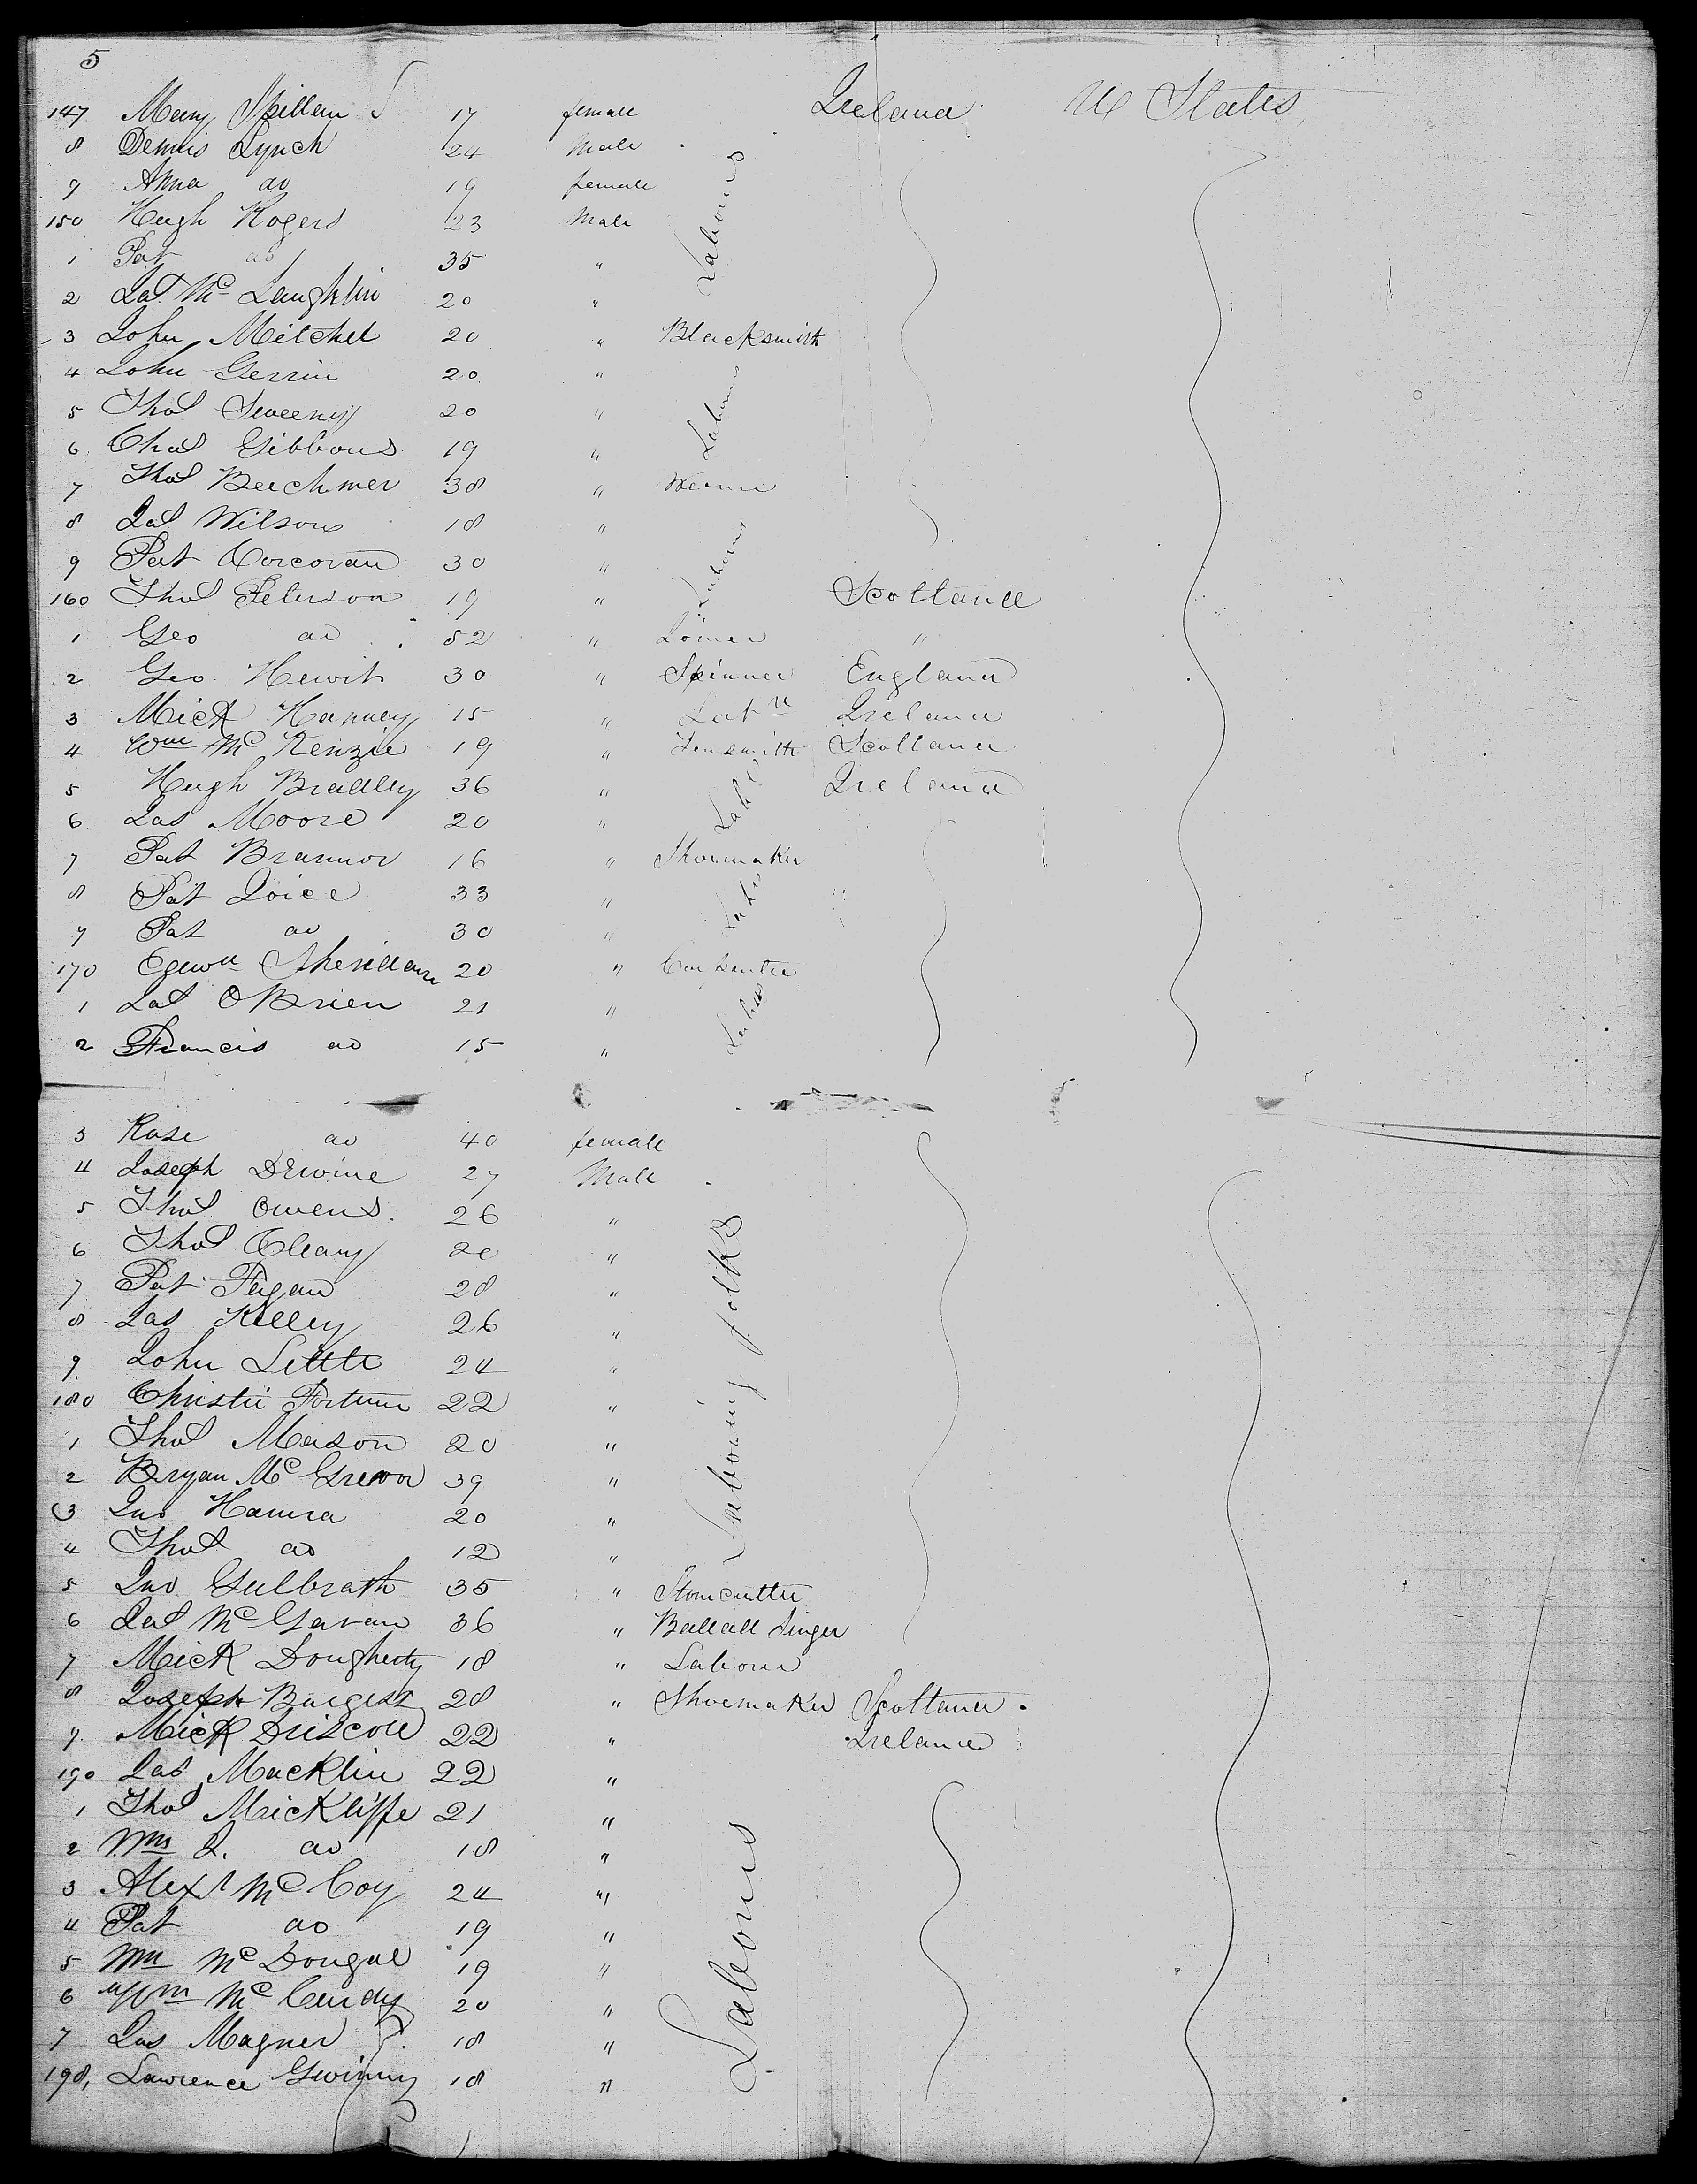 5
147 Mary Spillan 17 female Ireland U States
8 Dennis Lynch 24 Male
9 Anna do 19 female
150 Hugh Rogers 23 Male Labourers
1 Pat do 35 "
2 Jas Mc Laughlin 20 "
3 John Mitchel 20 " Blacksmith
4 John Gerrin 20 "
5 Thos Sweeny 20 " Labourers
6 Chas Gibbons 19 "
7 Thos 38 "
8 Jas Wilson 18 "
9 Pat Corcoran 30 " Labourers
160 Thos Peterson 19 " Scotland
1 Geo do 52 " Joiner "
2 Geo Hewit 30 " Spinner England
3 Mick Hanney 15 " Labr Ireland
4 Wm Mc Kenzie 19 " Tinsmith Scotland
5 Hugh Bradley 36 " Ireland
6 Jas Moore 20 "
7 Pat Brannor 16 " Shoemaker
8 Pat Joice 33 "
9 Pat do 30 "
170 Sheridan 20 " Carpenter
1 Jas O Brien 21 "
2 Francis do 15 "
3 Rose do 40 female
4 Joseph Devine 27 Male
5 Thos Owens 26 "
6 Thos Cleary 20 "
7 Pat Fegan 28 "
8 Jas Kelley 26 "
9 John Little 24 "
180 Christie Fortune 22 " Labouring folks
1 Thos Mason 20 "
2 Bryan Mc 39 "
3 Jno Hanna 20 "
4 Thos do 12 "
5 Jno Gulbrath 35 " Stonecutter
6 Jas Mc Gavan 36 " Ballad Singer
7 Mick Dougherty 18 " Labour
8 Joseph Burgess 28 " Shoemaker Scotland
9 Mick Driscoll 22 " Ireland
190 Jas Macklin 22 "
1 Thos Mickliffe 21 "
2 Wm J. do 18 "
3 Alexr Mc Coy 24 "
4 Pat do 19 " Labourers
5 Wm Mc Dougal 19 "
6 Wm Mc Curdy 20 "
7 Jas Magner 18 "
198, Lawrence Gwinny 18 "